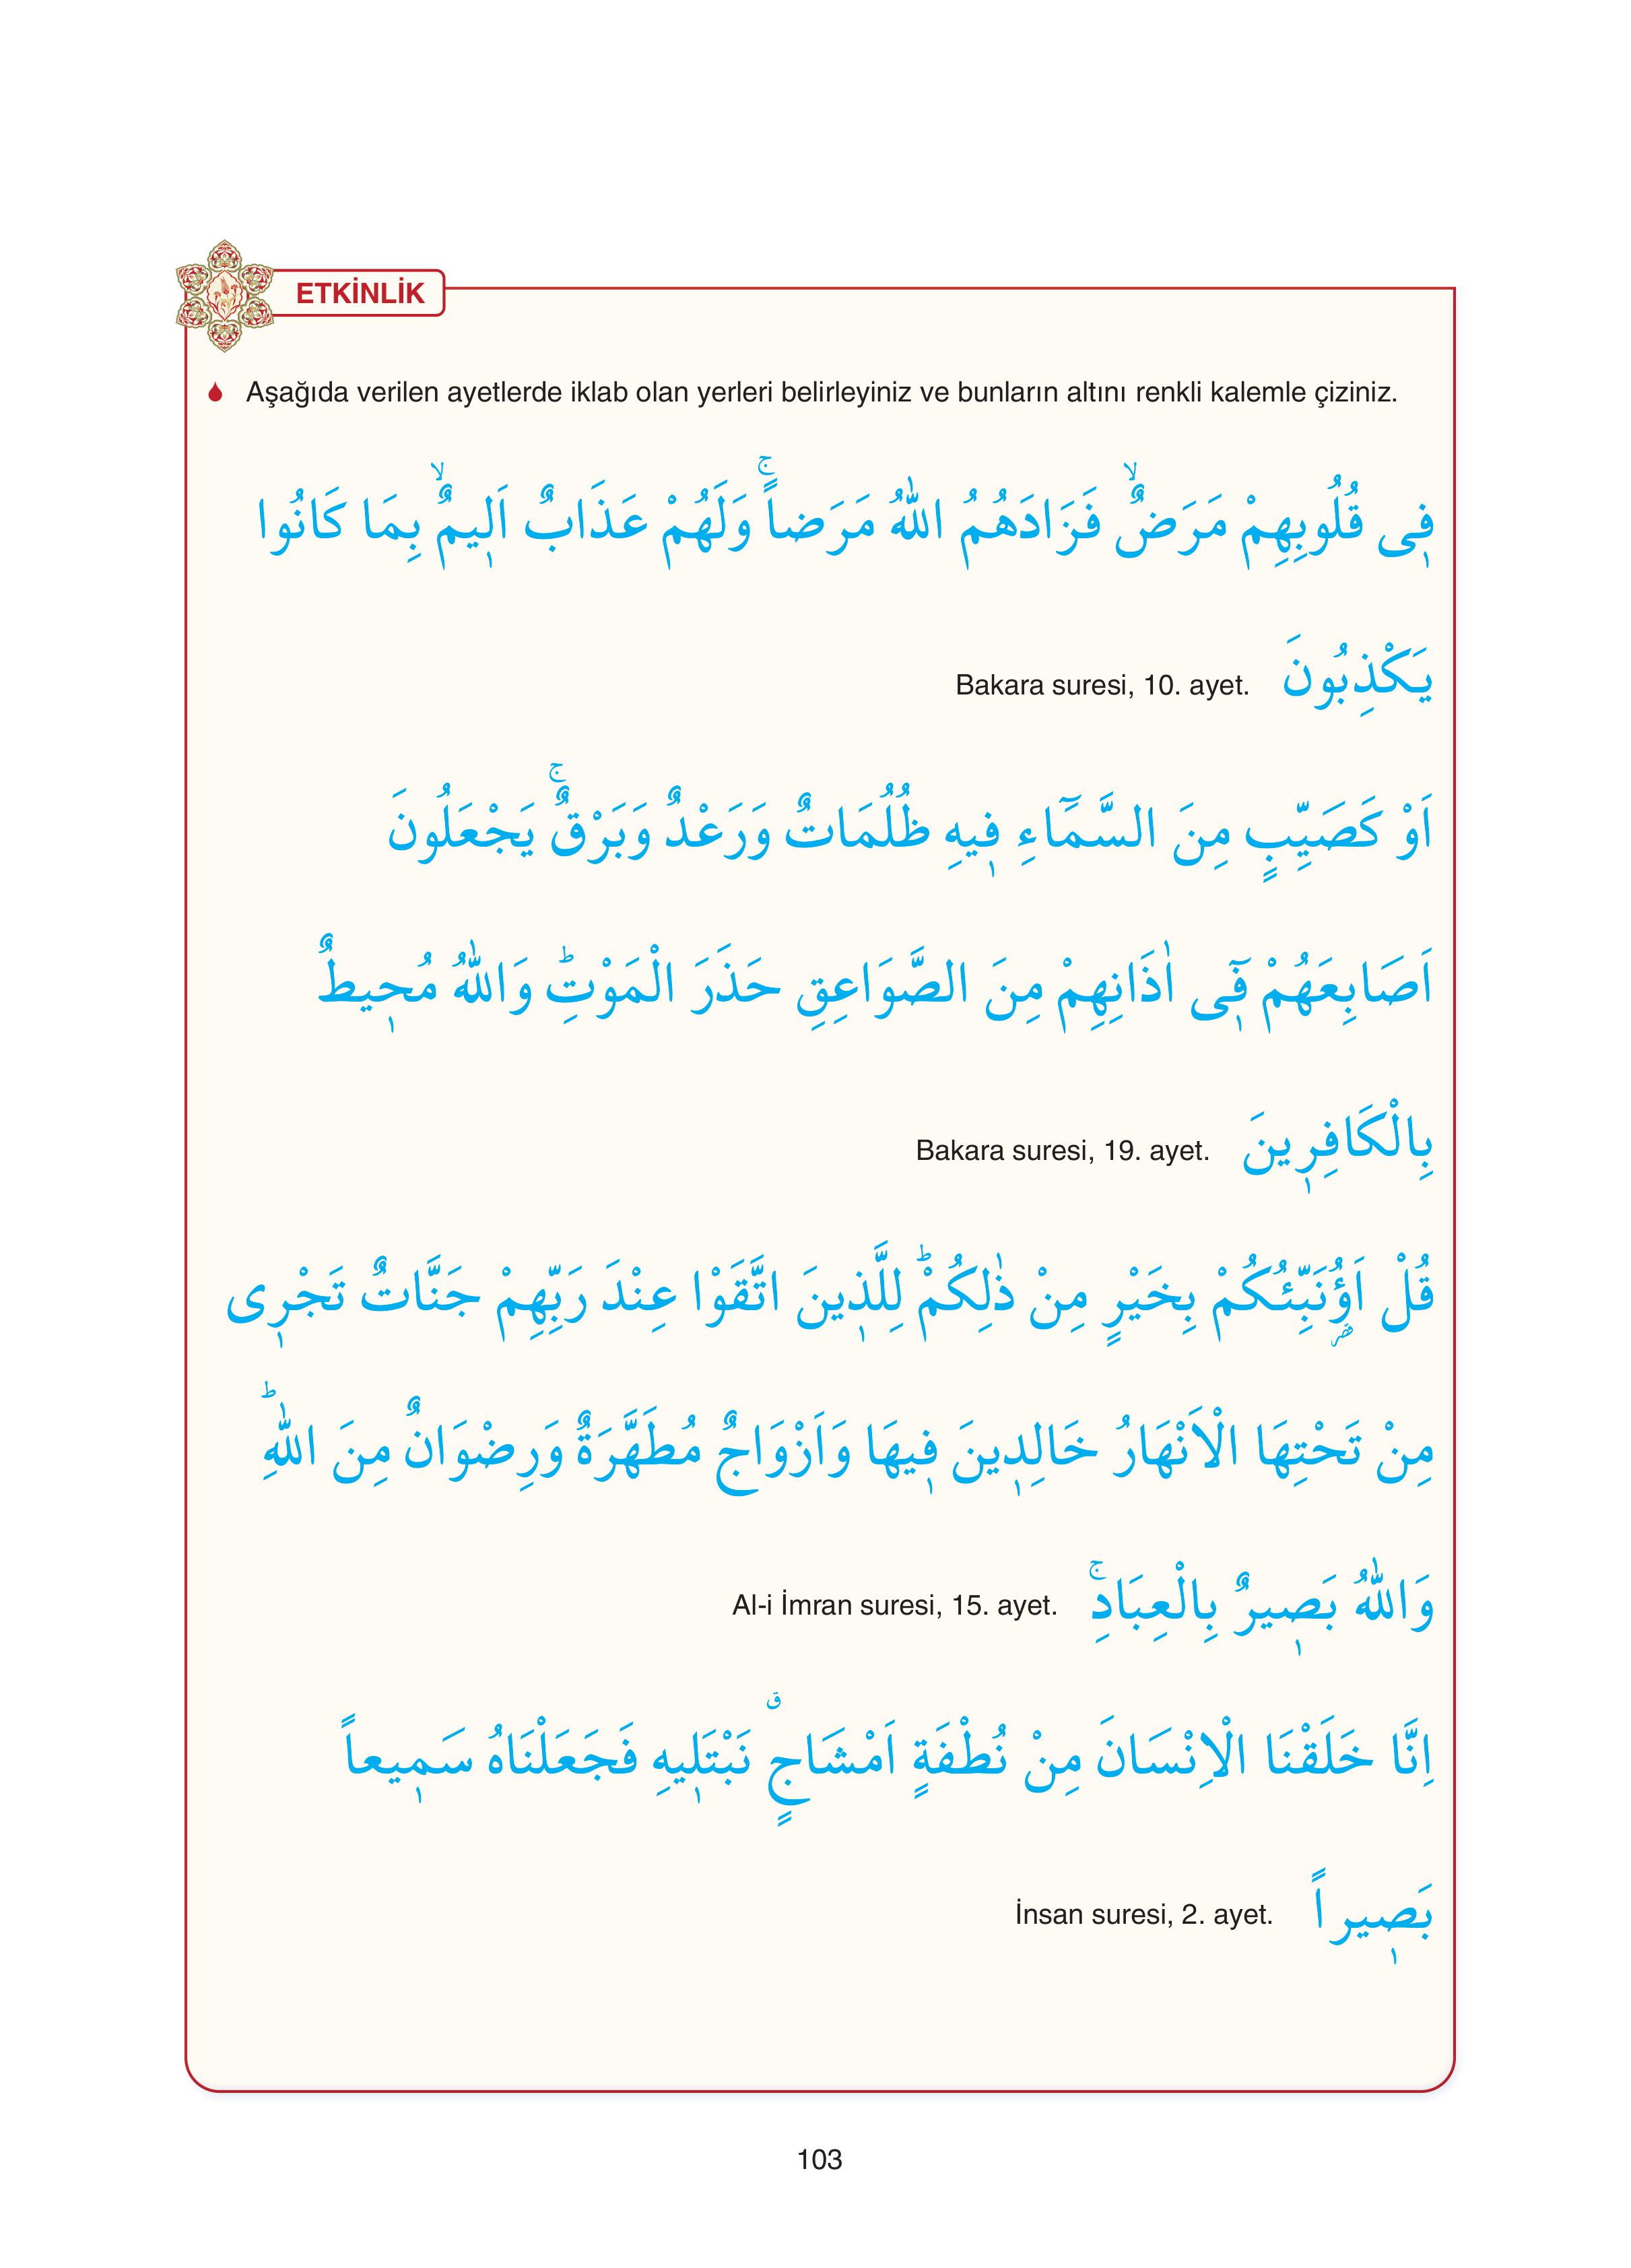 ETKİNLİK
Aşağıda verilen ayetlerde iklab olan yerleri belirleyiniz ve bunların altını renkli kalemle çiziniz.
فٖى قُلُوبِهِمْ مَرَضٌۙ فَزَادَهُمُ اللّٰهُ مَرَضاًۚ وَلَهُمْ عَذَابٌ اَلٖيمٌۙ بِمَا كَانُوا
يَكْذِبُونَ Bakara suresi, 10. ayet.
اَوْ كَصَيِّبٍ مِنَ السَّمَٓاءِ فٖيهِ ظُلُمَاتٌ وَرَعْدٌ وَبَرْقٌۚ يَجْعَلُونَ
اَصَابِعَهُمْ فٖٓى اٰذَانِهِمْ مِنَ الصَّوَاعِقِ حَذَرَ الْمَوْتِؕ وَاللّٰهُ مُحٖيطٌ
بِالْكَافِرٖينَ Bakara suresi, 19. ayet.
قُلْ اَؤُنَبِّئُكُمْ بِخَيْرٍ مِنْ ذٰلِكُمْؕ لِلَّذٖينَ اتَّقَوْا عِنْدَ رَبِّهِمْ جَنَّاتٌ تَجْرٖى
قصر
مِنْ تَحْتِهَا الْاَنْهَارُ خَالِدٖينَ فٖيهَا وَاَزْوَاجٌ مُطَهَّرَةٌ وَرِضْوَانٌ مِنَ اللّٰهِؕ
وَاللّٰهُ بَصٖيرٌ بِالْعِبَادِۚ Al-i İmran suresi, 15. ayet.
اِنَّا خَلَقْنَا الْاِنْسَانَ مِنْ نُطْفَةٍ اَمْشَاجٍࣗ نَبْتَلٖيهِ فَجَعَلْنَاهُ سَمٖيعاً
بَصٖيراً İnsan suresi, 2. ayet.
103